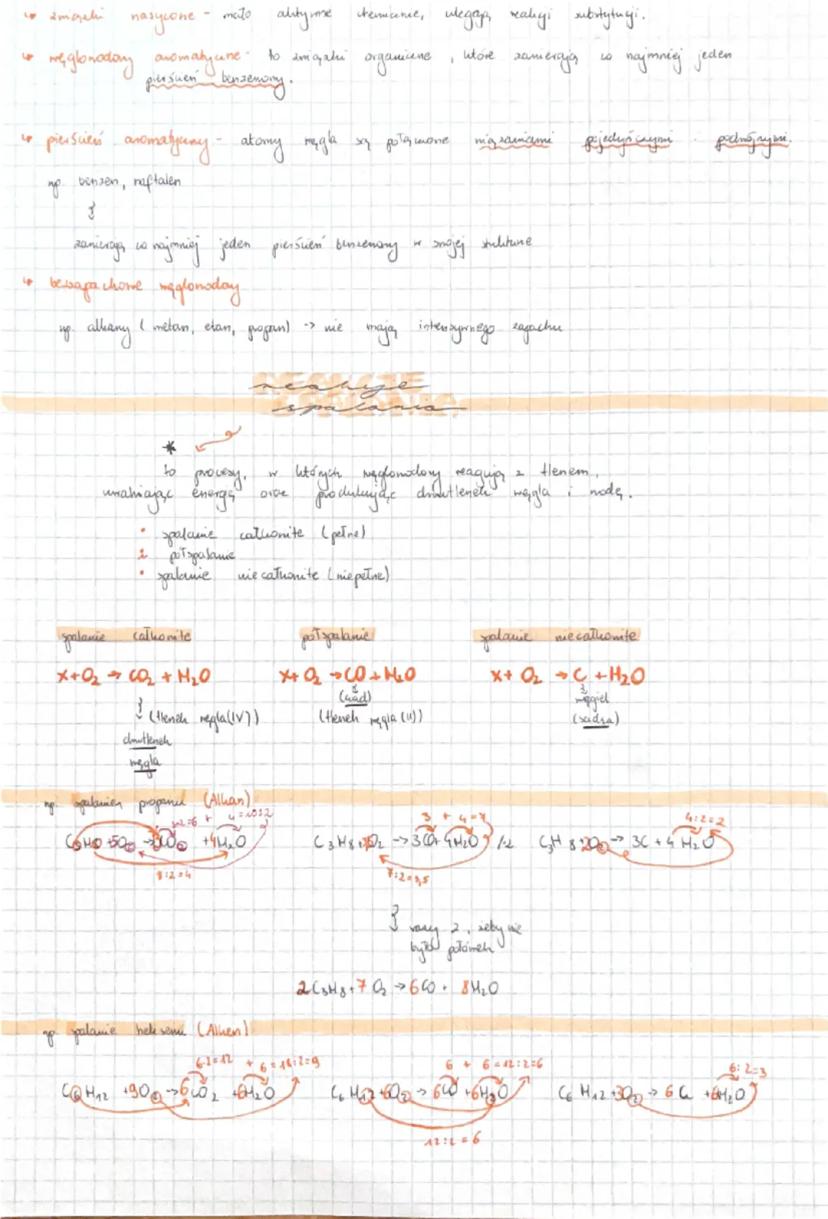 ↳ związki nasycone - mało aktywne chemicznie, ulegają reakcji substytucji.
↳ węglowodory aromatyczne - to związki organiczne, które zawierają co najmniej jeden
pierścień benzenowy.
↳ pierścień aromatyczny - atomy węgla są połączone wiązaniami pojedyńczymi podwójnymi.
np. benzen, naftalen
zawierają co najmniej jeden pierścień benzenowy w swojej strukturze
↳ bezzapachowe węglowodory
np. alkany (metan, etan, propan) -> nie mają intensywnego zapachu
reakcje
spalania
*
to procesy, w których węglowodory reagują z tlenem,
uwalniając energę oraz produkując dwutlenek węgla i wodę.
• spalanie całkowite (pełne)
półspalanie
• spalanie niecałkowite (niepełne)
spalanie całkowite półspalanie spalanie niecałkowite
x + O2 → CO2 + H2O x + O2 → CO + H2O x + O2 → C + H2O
(czad) węgiel
(tlenek węgla (IV)) (tlenek węgla (II)) (sadza)
dwutlenek
węgla
np. spalanien propanu (Alkan)
3 + 4 = 7 4:2=2
C3H8 + 5O2 → 3CO2 + 4H2O C3H8 + O2 → 3CO + 4H2O /·2 C3H8 + 2O2 → 3C + 4H2O
8:2=4 7:2=3,5
razy 2, żeby nie
było połówek
2C3H8 + 7O2 → 6CO + 8H2O
np. spalanie heksenu (Alken)
6·2=12 + 6=18:2=9 6 + 6=12:2=6 6:2=3
C6H12 + 9O2 → 6CO2 + 6H2O C6H12 + 6O2 → 6CO + 6H2O C6H12 + 3O2 → 6C + 6H2O
12:2=6